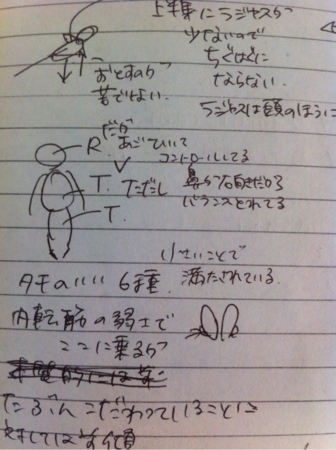 上半身にラジャスが
少ないので
ちぐはぐに
ならない
おとすのが
苦でない
ラジャスは頭のほうに
だが
R. あごひいて
コントロールしてる
T. ただし
鼻から右きだりる
バランスとれてる
T.
りせいことで
満たされている
タモのいい6種
内転筋の弱さで
ここに乗るから
たぶんこだわっていることに
対しては